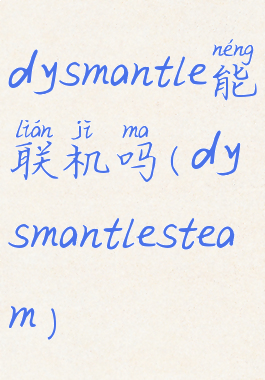 néng
dysmantle能
lián jī ma
联机吗(dy
smantlestea
m)